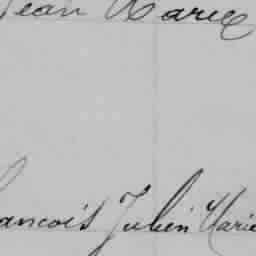 Jean Marie
rançois Julien Marie